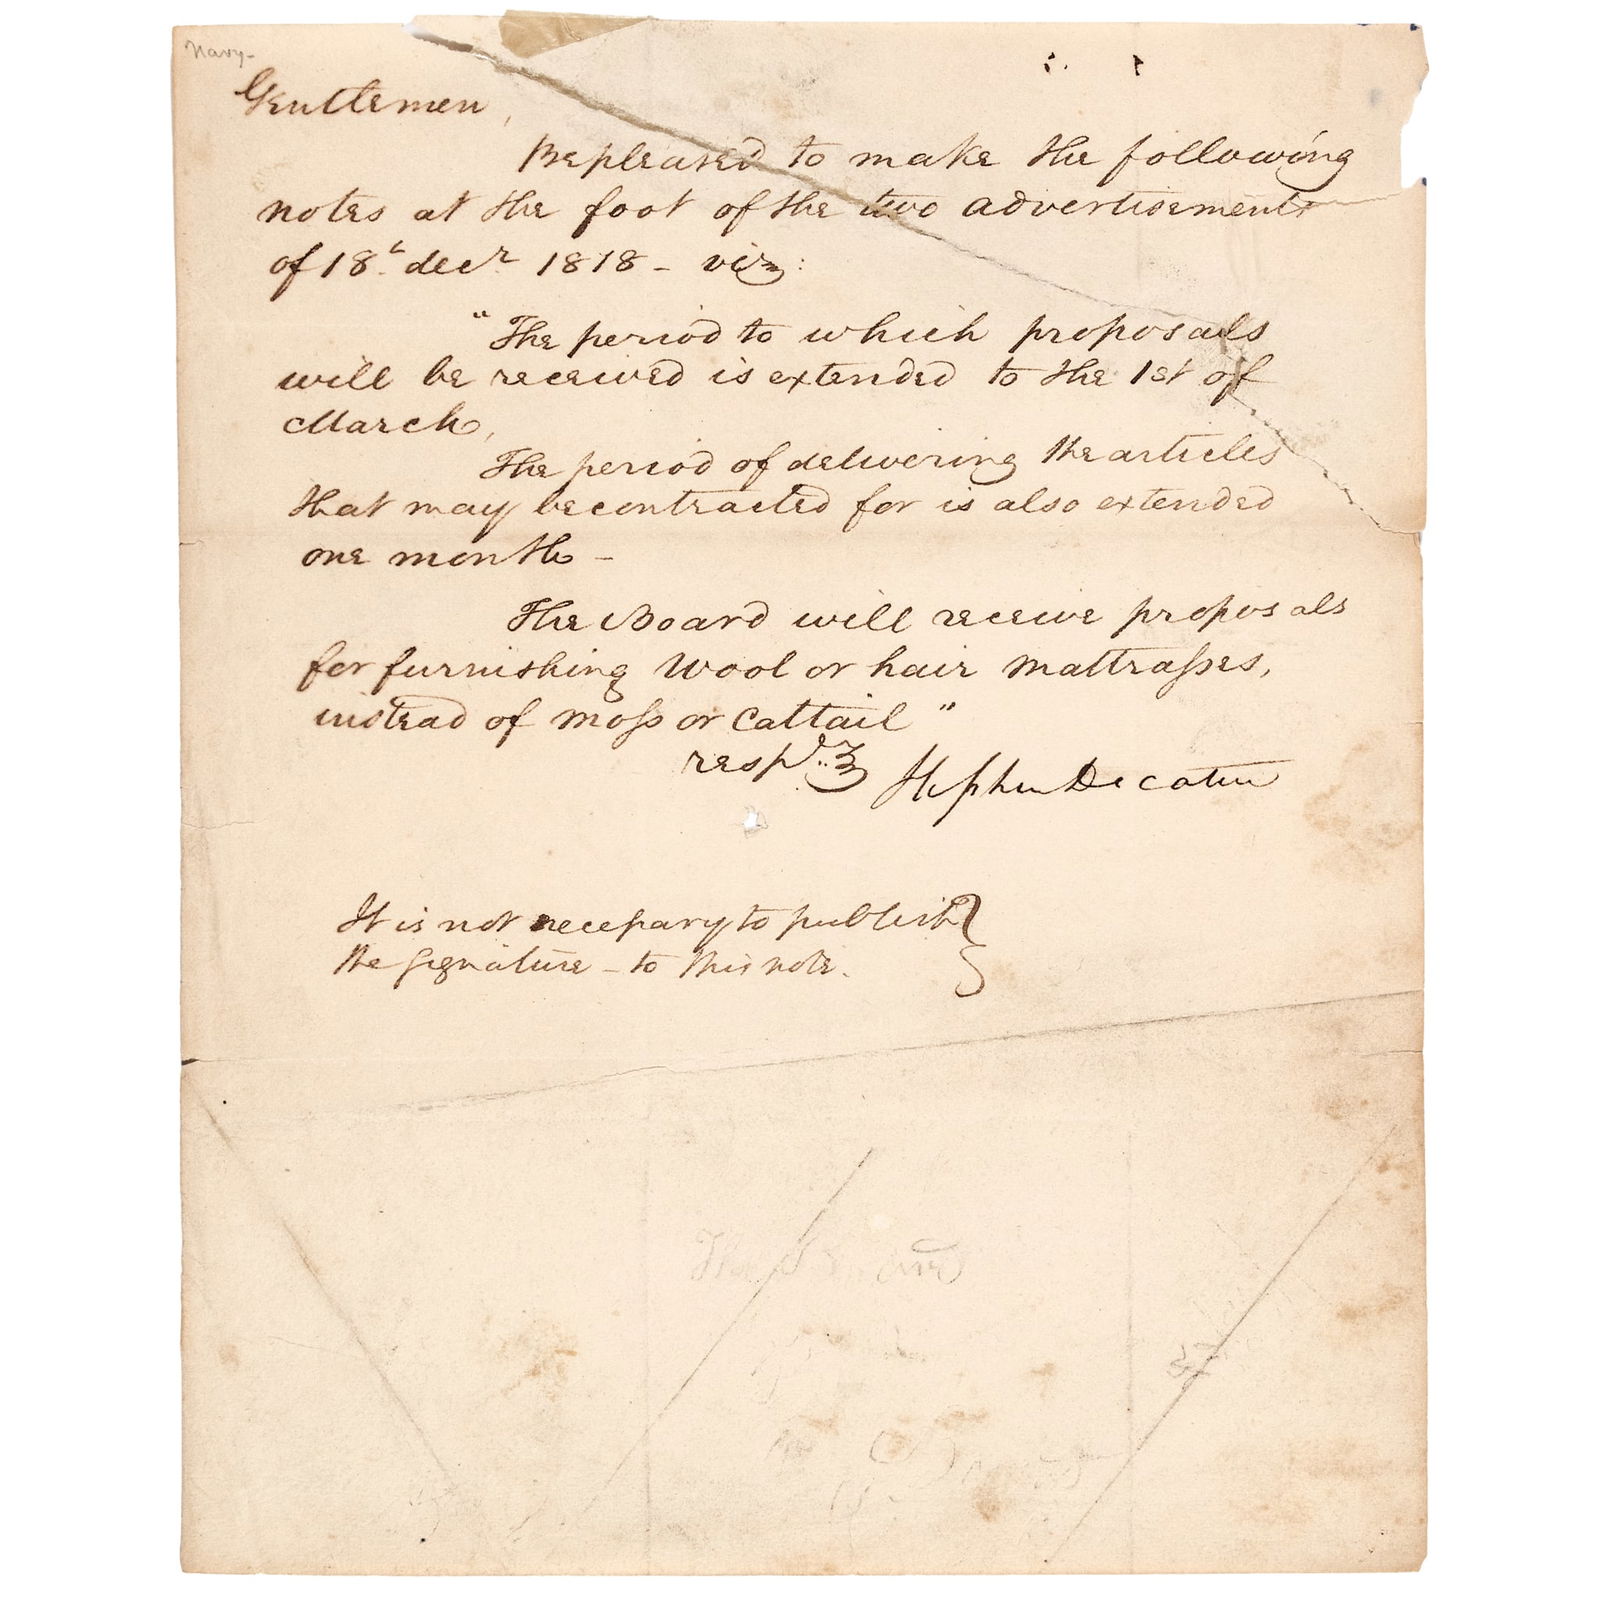 Navy-
Gentlemen,
Be pleased to make the following
notes at the foot of the two advertisements
of 18.th decr. 1818 - viz:
"The period to which proposals
will be received is extended to the 1st of
March,
The period of delivering the articles
that may be contracted for is also extended
one month -
The Board will receive proposals
for furnishing Wool or hair mattrasses,
instead of moss or Cattail"
resp.y Stephen Decatur
It is not necessary to publish
the signature - to this note.